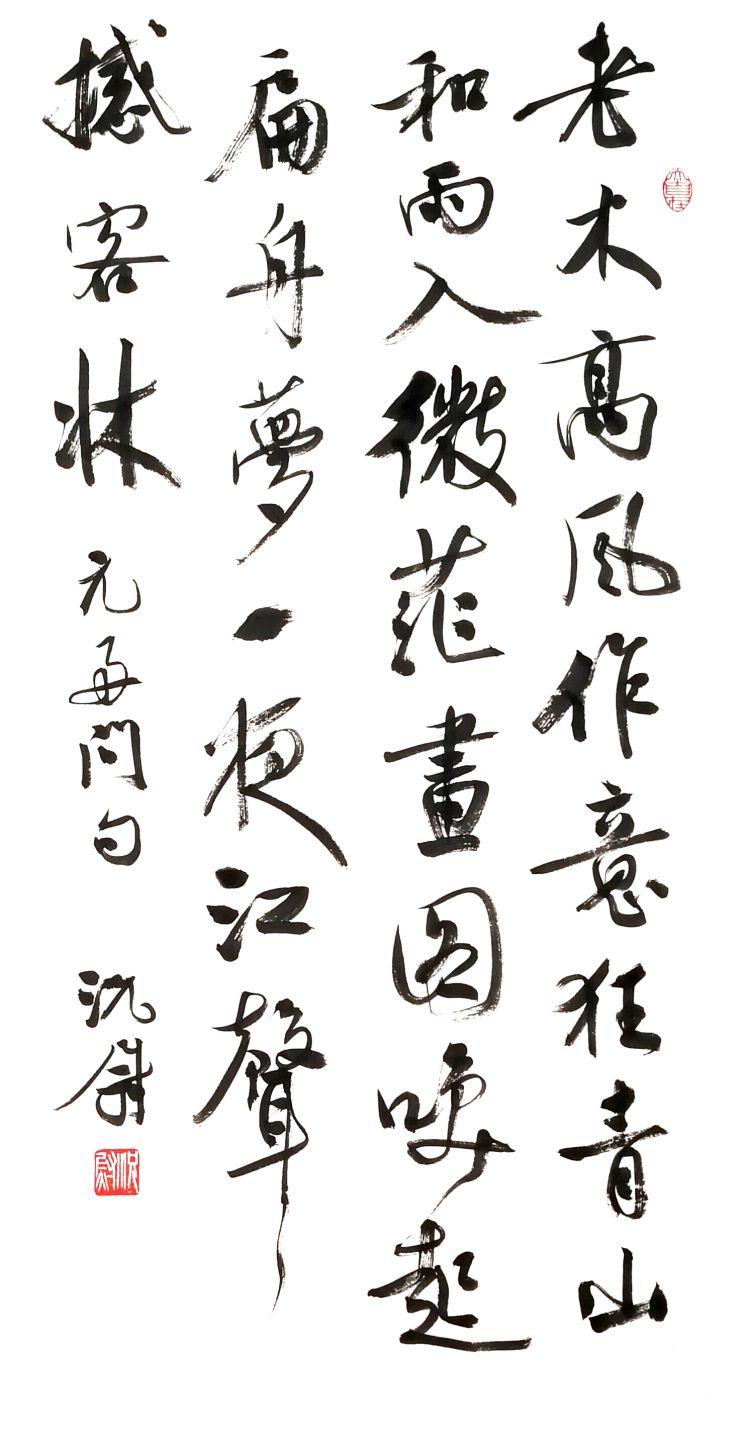 老木高風作意狂青山
和雨入微茫畫圖喚起
扁舟夢一夜江聲
撼客牀 元好問句 沈